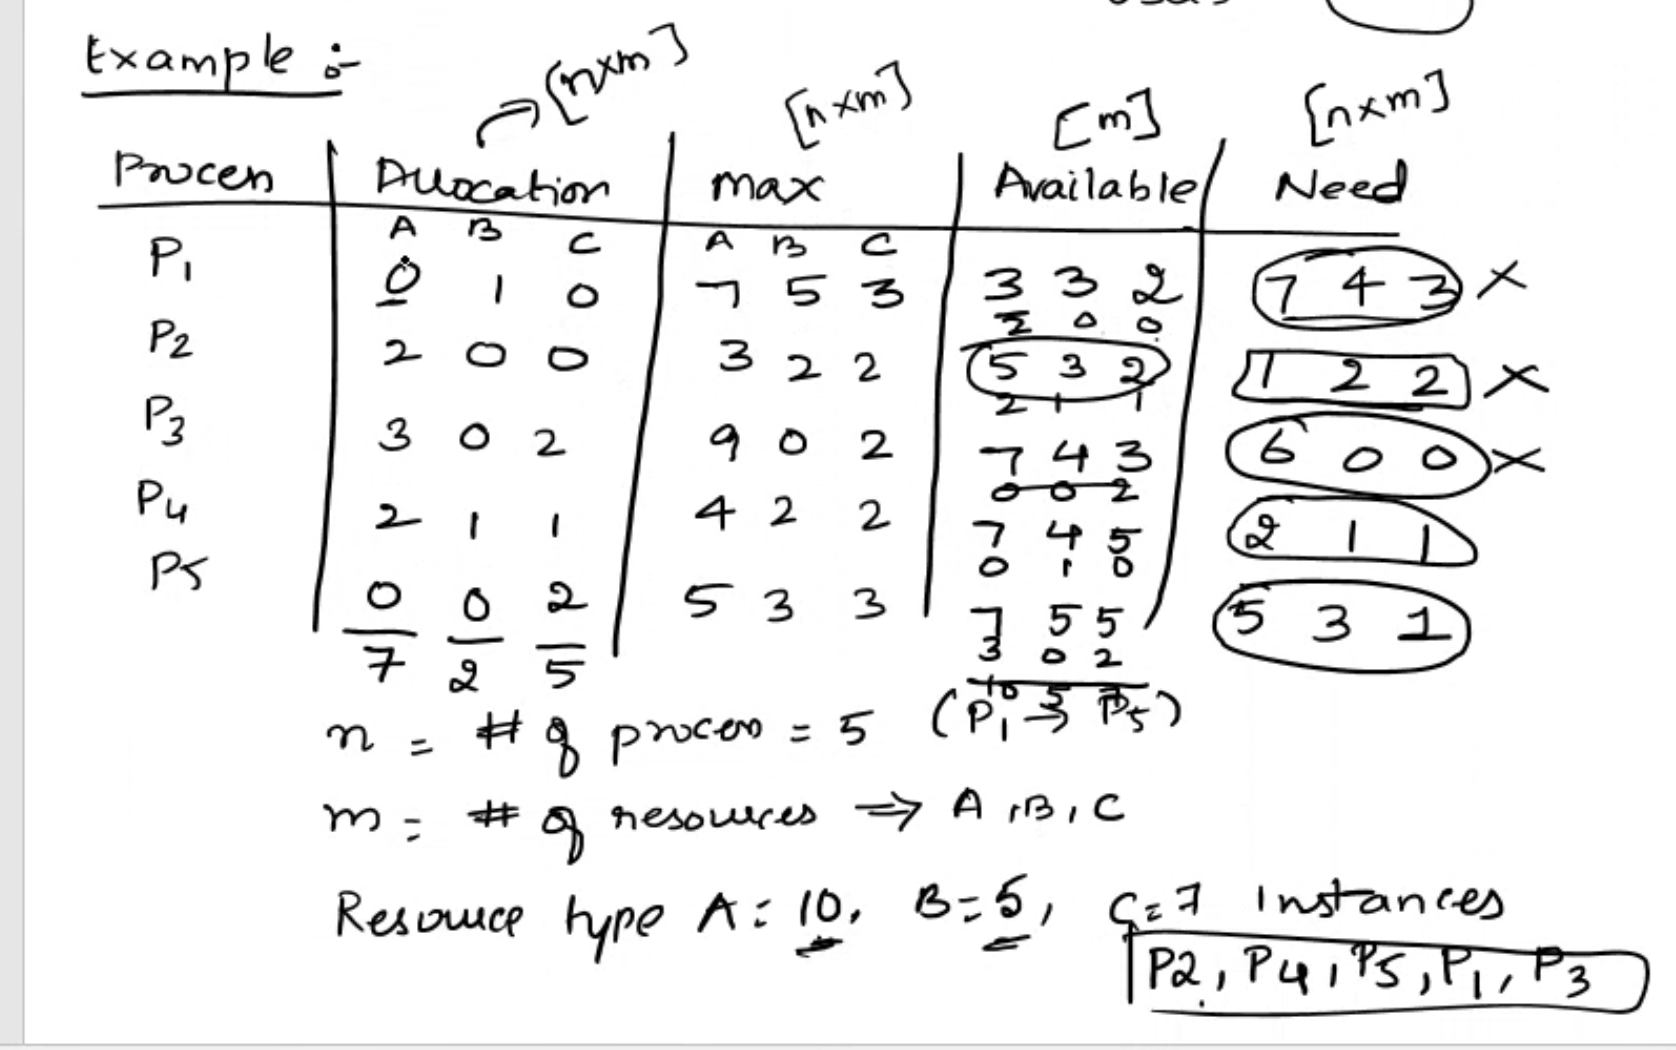 Example :-
[n×m] [n×m] [m] [n×m]
Process Allocation Max Available Need
A B C A B C
P1 0 1 0 7 5 3 3 3 2 7 4 3 ×
2 0 0
P2 2 0 0 3 2 2 5 3 2 1 2 2 ×
2 1 1
P3 3 0 2 9 0 2 7 4 3 6 0 0 ×
0 0 2
P4 2 1 1 4 2 2 7 4 5 2 1 1
0 1 0
P5 0 0 2 5 3 3 7 5 5 5 3 1
7 2 5 3 0 2
10 5 7
n = # of process = 5 (P1 → P5)
m = # of resources ⇒ A, B, C
Resource type A = 10, B = 5, C = 7 Instances
P2, P4, P5, P1, P3